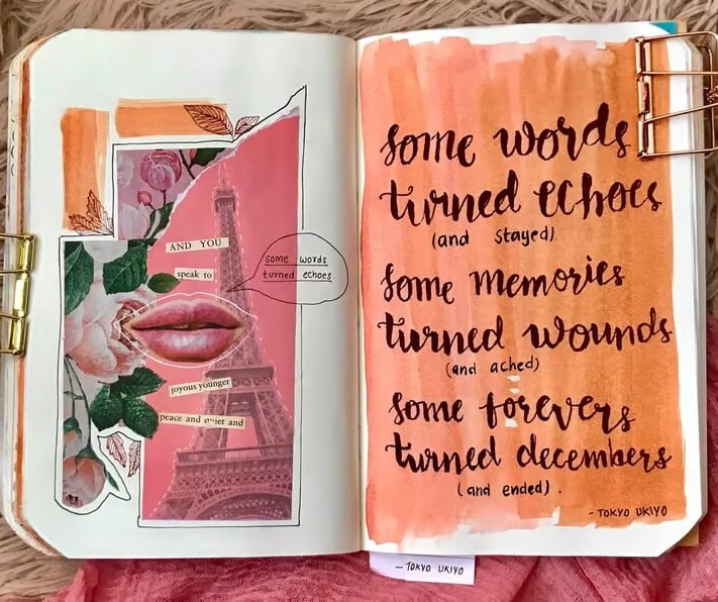 AND YOU
speak to
some words
turned echoes.
joyous younger
peace and quiet and
some words
turned echoes
(and stayed)
some memories
turned wounds
(and ached)
some forevers
turned decembers
(and ended).
- TOKYO UKIYO
- TOKYO UKIYO